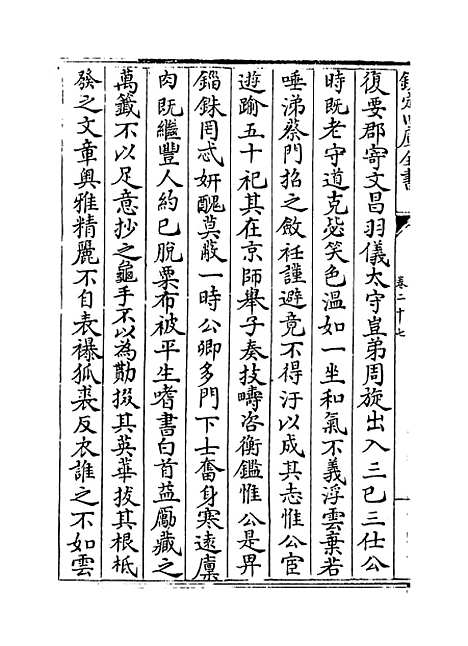 欽定四庫全書
卷二十七
復要郡寄文昌羽儀太守豈弟周旋出入三已三仕公
時既老守道克毖笑色温如一坐和氣不義浮雲棄若
唾涕蔡門招之斂衽謹避竟不得汙以成其志惟公宦
遊踰五十祀其在京師舉子奏技疇咨衡鑑惟公是畀
錙銖罔忒妍醜莫蔽一時公卿多門下士奮身寒遠廩
肉既繼豐人約已脱粟布被平生嗜書白首益勵藏之
萬籤不以足意抄之龜手不以為勩掇其英華拔其根柢
發之文章奥雅精麗不自表襮狐裘反衣誰之不如雲